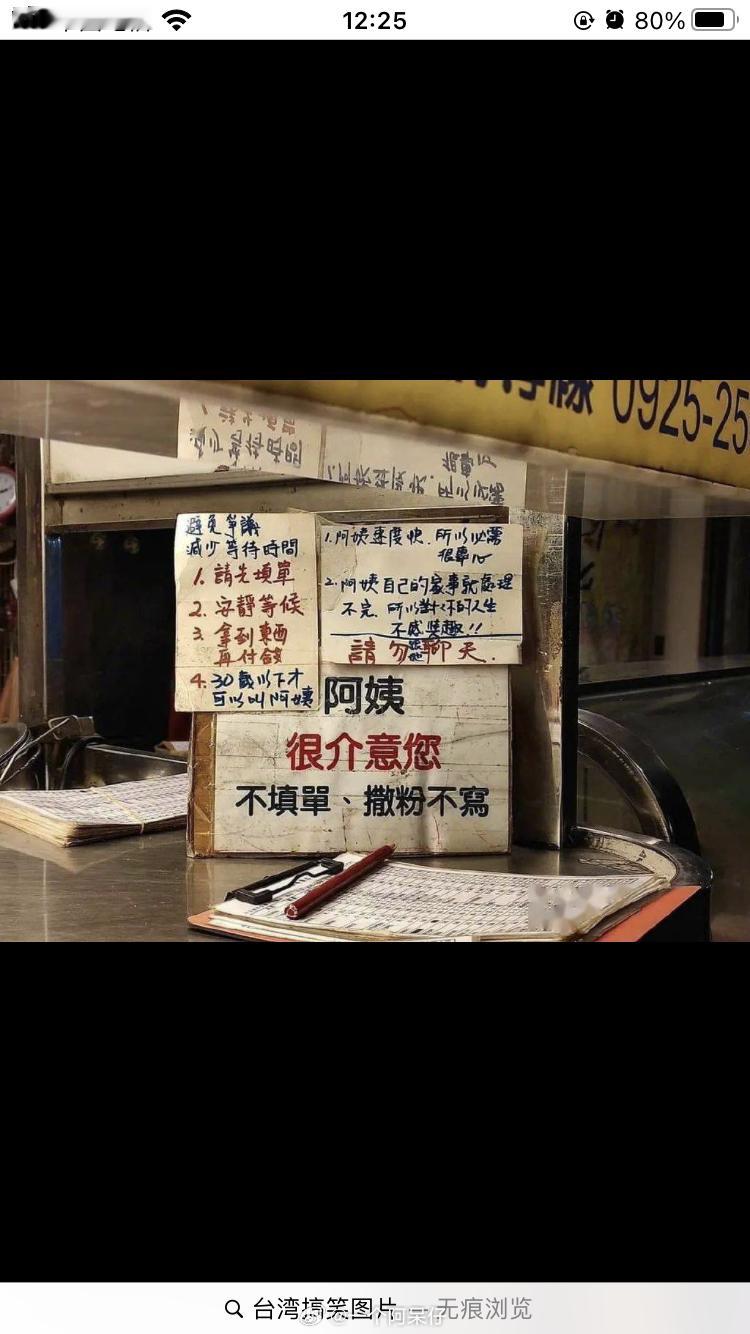 12:25
80%
0925-25
避免爭議
減少等待時間
1. 請先填單
2. 安靜等候
3. 拿到東西
再付錢
4. 30歲以下才
可以叫阿姨
1. 阿姨速度快. 所以必需
很專心
2. 阿姨自己的家事就處理
不完. 所以對你的人生
不感興趣!!
請勿跟他聊天.
阿姨
很介意您
不填單、撒粉不寫
台湾搞笑图片 — 无痕浏览